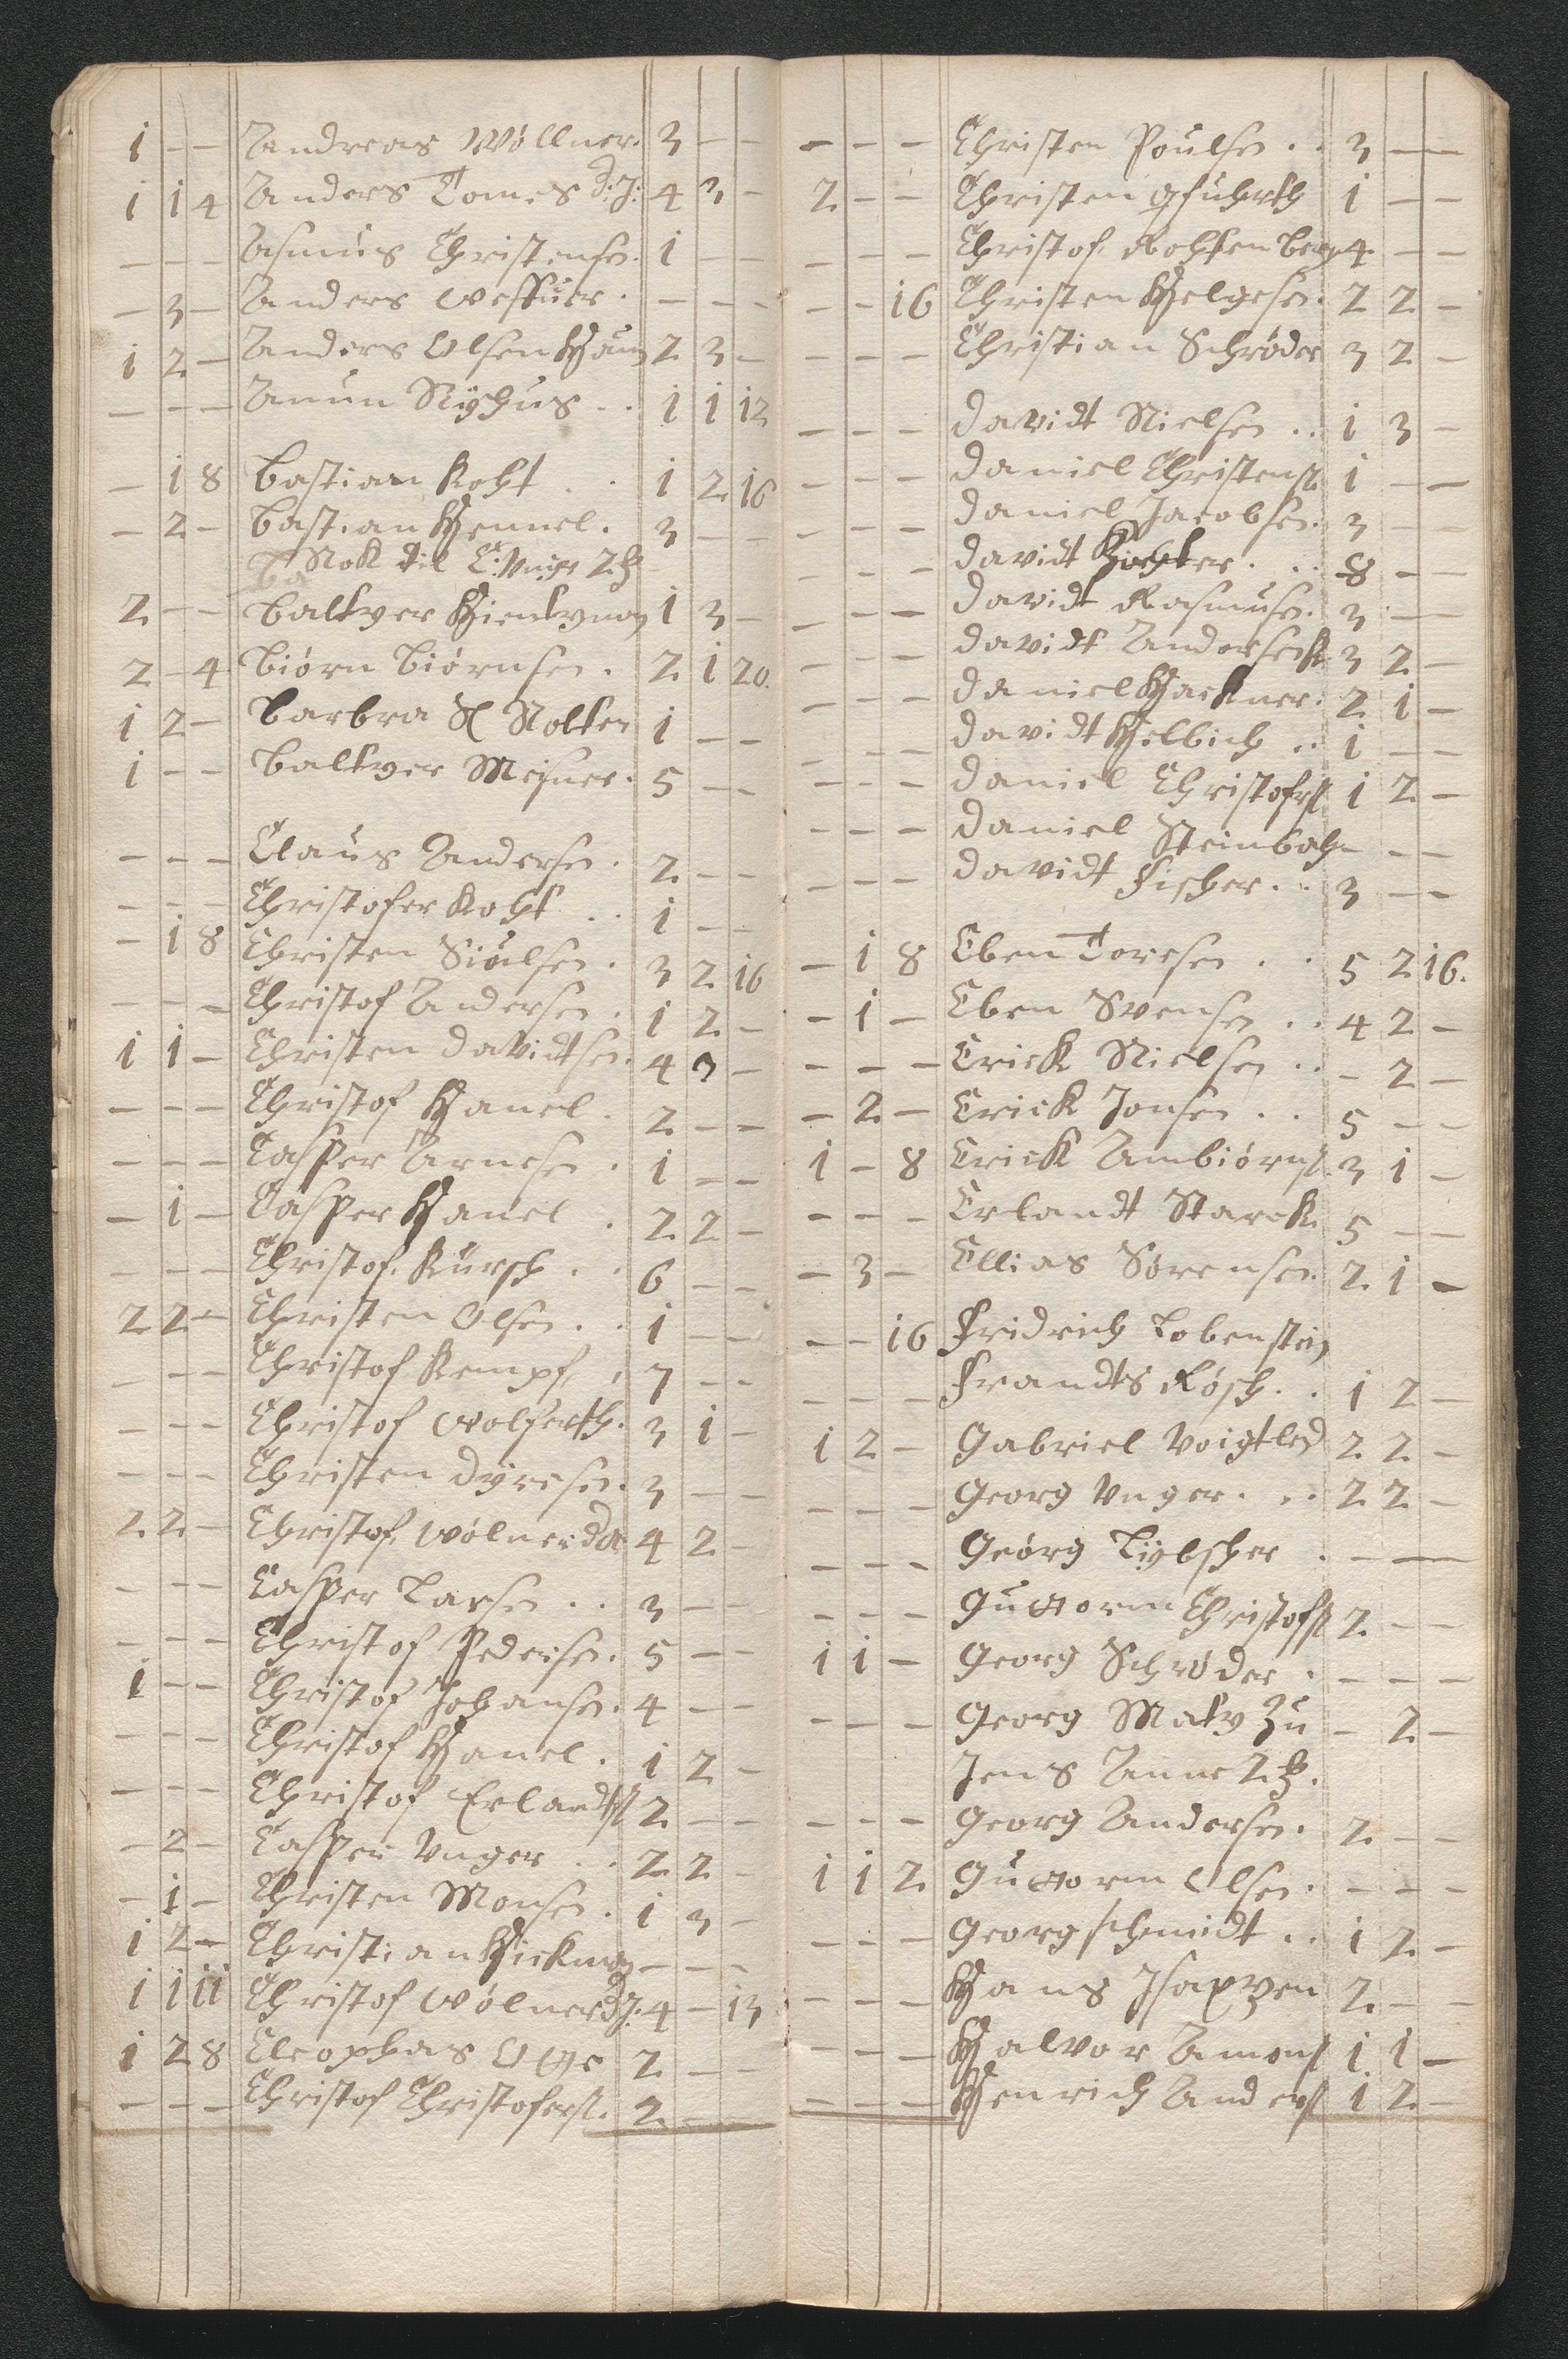 1 - - Andreas Wöllner. 3 - -
1 1 4 Anders Tomes d: J: 4 3 -
- - - Asmus Christensen. 1 - -
- 3 - Anders - - -
1 2 - Anders Olsen Haug 2 3 -
- - - Anun Nÿhus .. 1 1 12
- 1 8 Bastian Koht .. 1 2 16
- 2 - Bastian Hennel. 3 - -
Nok til
2 - - Baltzer 1 3 -
2 - 4 Biörn Biörnsen. 2 1 20.
1 2 - Barbra Sl Nolten 1 - -
1 - - Baltzer Meisner. 5 - -
- - - Claus Andersen. 2 - -
- - - Christofer Koht .. 1 - -
- 1 8 Christen Siulsen. 3 2 16
- - - Christof Andersen. 1 2 -
1 1 - Christen Davidtsen. 4 3 -
- - - Christof Hanel. 2 - -
- - - Casper Arnesen. 1 - -
- 1 - Casper Hanel. 2 2 -
- - - Christof Kursch .. 6 - -
2 2 - Christen Olsen .. 1 - -
- - - Christof Kempf. 7 - -
- - - Christof Wolferth. 3 1 -
- - - Christen Dÿresen. 3 - -
2 2 - Christof Wölner 4 2 -
- - - Casper Larsen .. 3 - -
- - - Christof Pedersen. 5 - -
1 - - Christof Johansen. 4 - -
- - - Christof Hanel. 1 2 -
- - - Christof Erlandtss 2 - -
- 2 - Casper Unger .. 2 2 -
- 1 - Christen Monsen. 1 3 -
1 2 - Christian Hickman - - -
1 1 11 Christof Wölner d J. 4 - 13
1 2 8 Cleophas Otte 2 - -
- - - Christof Christofers. 2 - -
- - - Christen Poulsen .. 3 - -
2 - - Christen Gfuhrth 1 - -
- - - Christof Rohtenberg 4 - -
- - 16 Christen Helgesen. 2 2 -
- - - Christian Schröder 3 2 -
- - - Davidt Nielsen .. 1 3 -
- - - Daniel Christens 1 - -
- - - Daniel Jacobsen. 3 - -
- - - Davidt .. 8 - -
- - - Davidt Rasmusen. 3 - -
- - - Davidt Andersen K 3 2 -
- - - Daniel Hackner. 2 1 -
- - - Davidt Helbich .. 1 - -
- - - Daniel Christofers 1 2 -
- - - Daniel Steinbach - - -
- - - Davidt Fischer .. 3 - -
- 1 8 Eben Toresen .. 5 2 16.
- 1 - Eben Svensen .. 4 2 -
- - - Erick Nielsen .. - 2 -
- 2 - Erick Jonsen .. 5 - -
1 - 8 Erick Ambiörns. 3 1 -
- - - Erlandt Starck. 5 - -
- 3 - Ellias Sörensen. 2 1 -
- - 16 Fridrich Lobenstein
- - - Frandts Rösch .. 1 2 -
1 2 - Gabriel Voigtled 2 2 -
- - - Georg Unger ... 2 2 -
- - - Geörg Lÿbscher . - -
- - - Guttorm Christofs 2 - -
1 1 - Georg Schröder . - - -
- - - Georg Matz Zu - 2 -
Jens Anne 2 .
- - - Georg Andersen. 2 - -
1 1 2 Guttorm Olsen. - - -
- - - Georg Schmidt .. 1 2 -
- - - Hans 2 - -
- - - Halvor Amons 1 1 -
- - - Henrich Anders 1 2 -